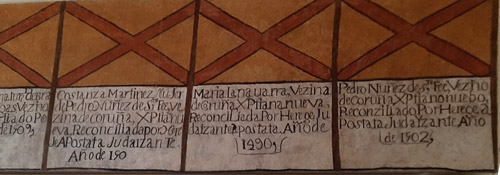 de 1509,
Costanza Martinez, Muger
de Pedro Nuñez de S.ta Fee, ve
zina de coruña, XPitana
eva, Reconciliada por
Apostata Judaizante.
Año de 150
Maria la nauarra, Vezina
de Coruña XPitana nueva,
Reconciliada Por Herege Ju
daizante apostata. Año de
1490,
Pedro Nuñez de S.ta Fee Vezino
de coruña XPitano nuebo,
Reconziliado Por Herege, a
Postata Judaizante Año
de 1502,